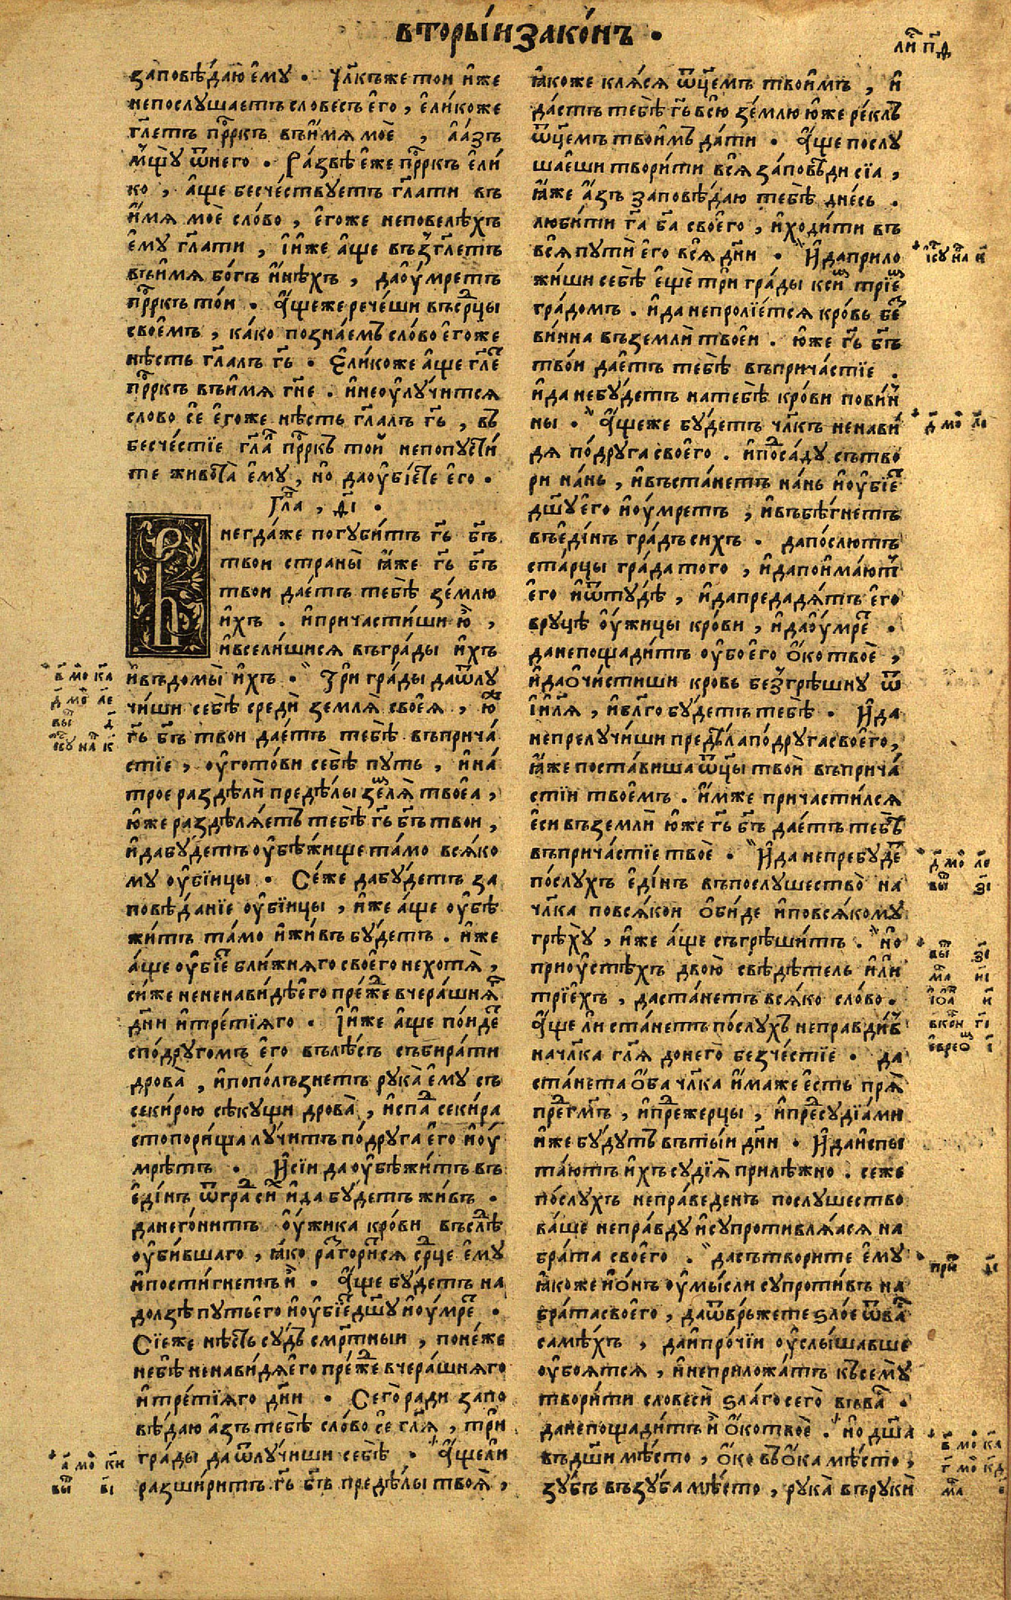 вторы́и зако́нъ .
ли́ п҃д
заповѣ́даю ему̀ . Чл҃къже тои и́же
непослу́шаетъ слове́съ его̀ , ели́коже
гл҃етъ прⷪ҇ркъ въи́мя моѐ , а а́зъ
мщꙋ̀ ѿнего̀ . Ра́звѣ е́же прⷪ҇ркъ ели́
ко , а́ще бесче́ствуетъ гл҃ати въ
и́мя моѐ сло́во , его́же неповелѣ́хъ
ему̀ гл҃ати , и и́же а́ще възгл҃етъ
въи́мя бо́гъ ине́хъ , даоу́мретъ
прⷪ҇ркъ то́и . А́щеже рече́ши въсе́рⷣцы
свое́мъ , ка́ко позна́емъ сло́во его́же
нѣ́сть гл҃алъ гь҃ . Ели́коже а́ще гл҃е
прⷪ҇ркъ въи́мя гн҃е . и неоулучи́тся
слово сѐ его́же нѣ́сть гл҃алъ гь҃ , въ
бесче́стїе гл҃а прⷪ҇ркъ то́й непопусти́
те живота̀ ему̀ , но̀ даоубїе́те его̀ .
Гла҃ , д҃і .
Внегда́же погуби́тъ гь҃ бг҃ъ
твои страны̀ ꙗ́же гь҃ бг҃ъ
твои дае́тъ тебѣ̀ зе́млю
и́хъ . и причасти́ши ю̀ ,
и всели́шися въгра́ды и́хъ
и въдомы̀ и́хъ . Трѝ гра́ды даѿлу
чи́ши себѣ̀ средѝ земля̀ своея̀ , ю́ж
гь҃ бг҃ъ твои дае́тъ тебѣ̀ въприча́
стїе , оугото́ви себѣ̀ путь , и на́
трое раздѣлѝ предѣ́лы земля̀ твоеа̀ ,
ю́же раздѣля́етъ тебѣ̀ гь҃ бг҃ъ твои ,
и дабу́детъ оубѣ́жище та́мо вся́ко
му оубїицы . Се́же дабу́детъ за
повѣ́данїе оубїицы , и́же а́ще оубѣ
жи́тъ та́мо и жи́въ бу́детъ . и́же
а́ще оубїе́ ближняго своего̀ нехотя̀ ,
си́же ненена́видѣ его̀ пре́жде вчера́шня
дн҃и и тре́тїяго . И и́же а́ще по́иде
сподру́гомъ его̀ въ лѣ́съ събира́ти
дрова̀ , и попо́лъзнетъ рука̀ ему̀ съ
секи́рою сѣку́щи дрова̀ , и спа́д секи́ра
стопори́ща лу́читъ по́друга его̀ и оу́
мретъ . И сїи да оубѣжи́тъ въ
еди́нъ ѿгра́д си́ и да бу́детъ жи́въ .
данего́нитъ оу́жика кро́ви въслѣ́
оуби́вшаго , ꙗ́ко разгори́ся се́рⷣце ему̀
и пости́гнетъ ѝ . А́ще бу́детъ на
до́лзѣ пути его̀ и оубїе́ дш҃у и оу́мре .
Сїе́же нѣ́сть су́дъ сме́ртныи , поне́же
небѣ̀ ненави́дя его̀ пре́жде вчера́шняго
и тре́тїяго дн҃и . Сего̀ ра́ди запо
вѣ́даю а́зъ тебѣ̀ сло́во сѐ гл҃я , трѝ
гра́ды даѿлучи́ши себѣ̀ . А́щели
разшири́тъ гь҃ бг҃ъ предѣ́лы твоя̀ ,
ꙗ́коже кля́ся ѿц҃емъ твои́мъ , и
да́стъ тебѣ̀ гь҃ всю̀ зе́млю ю́же ре́клъ
ѿц҃емъ твои́мъ да́ти . А́ще послу
ша́еши твори́ти вся̀ за́повѣди сїа ,
ꙗ́же а́зъ заповѣ́даю тебѣ̀ дне́сь .
люби́ти гд҃а бг҃а своего̀ , и ходи́ти въ
вся̀ путѝ его̀ вся̀ дн҃и . И даприло
жи́ши себѣ̀ ещѐ трѝ гра́ды кси́м трїе́м
гра́домъ . и да непролїе́тся кро́вь бе
ви́нна въземлѝ твое́и . ю́же гь҃ бг҃ъ
тво́и дае́тъ тебѣ̀ въприча́стїе .
и да небу́детъ на тебѣ̀ кро́ви пови́н
ны . А́щеже бу́детъ чл҃къ ненави́
дя по́друга своего̀ . и поса́ду сътво
ри на́нь , и въста́нетъ на́нь и оубїе́
дш҃у его̀ и оу́мретъ , и въбѣ́гнетъ
въеди́нъ гра́дъ си́хъ . да по́слютъ
ста́рцы гра́да того , и да пои́маютъ
его̀ и ѿту́дѣ , и да предадя́тъ его̀
вруцѣ̀ оу́жицы кро́ви , и даоу́мре .
данепощади́тъ оу́бо его̀ о́ко твоѐ ,
и даочи́стиши кровь безгрѣ́шну ѿ
ї҃иля , и бл҃го бу́детъ тебѣ̀ . И да
непрелучи́ши предѣ́ла по́друга своего̀ ,
ꙗ́же поста́виша ѿц҃ы твоѝ въприча́
стїи твое́мъ . и́мже причасти́лся
е́си въземлѝ ю́же гь҃ бг҃ъ дае́тъ тебѣ̀
въприча́стїе твоѐ . И да непребу́де
по́слухъ еди́нъ въпослу́шество на
чл҃ка повся́кои оби́де и повся́кому
грѣху̀ , и́же а́ще съгрѣши́тъ . но̀
приоустѣ́хъ двою̀ свѣдѣ́тель илѝ
трїе́хъ , даста́нетъ вся́ко сло́во .
А́ще ли ста́нетъ по́слухъ непра́вдив
на чл҃ка гл҃я до него̀ безче́стїе . да
ста́нета о́ба чл҃ка и́маже е́сть пря̀
предгмъ , и предже́рцы , и предсудїа́ми
и́же бу́дутъ вътыи дн҃и . И даиспы
та́ютъ и́хъ судїя̀ приле́жно . се́же
по́слухъ непра́веденъ послу́шество
ва́ше непра́вду и супротивля́яся на
бра́та своего̀ . дасътвори́те ему̀
ꙗ́коже и о́нъ оумы́сли супроти́въ на
бра́та своего̀ , даѿве́ржете ѕло́е ѿва́
самѣ́хъ , да и про́чїи оуслы́шавше
оубоя́тся , и неприло́жатъ къ сему̀
твори́ти словесѝ ѕла́го сего̀ въва́ .
данепощади́тъ ѝ о́ко твоѐ . но̀ дш҃а
въдш҃и мѣ́сто , о́ко въо́ка мѣ́сто ,
зу́бъ въ зу́ба мѣ́сто , рука̀ въ рукѝ